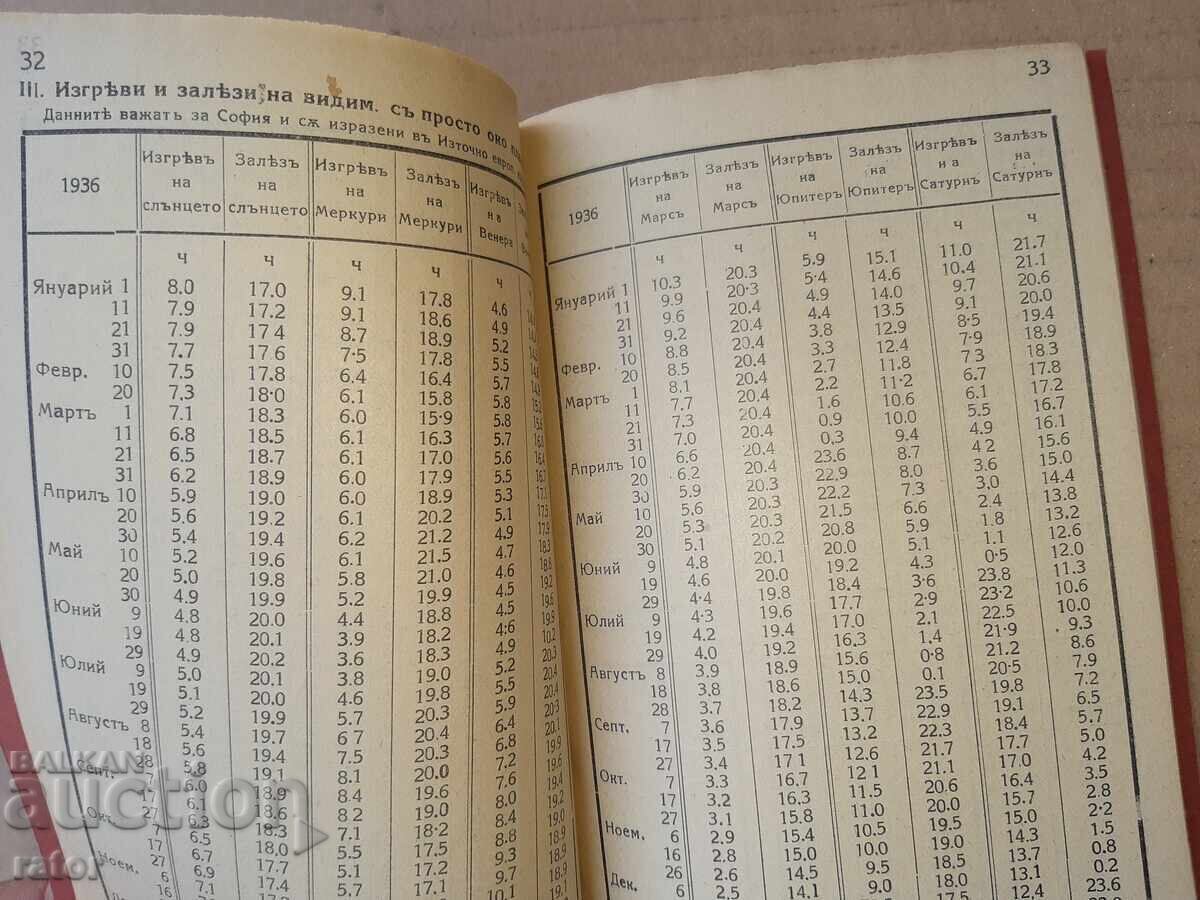 32
III. Изгрѣви и залѣзи на видим. съ просто око
Даннитѣ важатъ за София и сѫ изразени въ Източно европ.
1936 Изгрѣвъ на слънцето Залѣзъ на слънцето Изгрѣвъ на Меркури Залѣзъ на Меркури Изгрѣвъ на Венера
ч ч ч ч ч
Януарий 1 8.0 17.0 9.1 17.8 4.6
11 7.9 17.2 9.1 18.6 4.9
21 7.9 17 4 8.7 18.9 5.2
31 7.7 17.6 7·5 17.8 5.5
Февр. 10 7.5 17.8 6.4 16.4 5.7
20 7.3 18·0 6.1 15.8 5.8
Мартъ 1 7.1 18.3 6.0 15·9 5.8
11 6.8 18.5 6.1 16.3 5.7
21 6.5 18.7 6.1 17.0 5.6
31 6.2 18.9 6.0 17.9 5.5
Априлъ 10 5.9 19.0 6.0 18.9 5.3
20 5.6 19.2 6.1 20.2 5.1
30 5.4 19.4 6.2 21.2 4.9
Май 10 5.2 19.6 6.1 21.5 4.7
20 5.0 19.8 5.8 21.0 4.6
30 4.9 19.9 5.2 19.9 4.5
Юний 9 4.8 20.0 4.4 18.8 4.5
19 4.8 20.1 3.9 18.2 4:6
29 4.9 20.2 3.6 18.3 4.9
Юлий 9 5.0 20.1 3.8 18.9 5.2
19 5.1 20.0 4.6 19.8 5.5
29 5.2 19.9 5.7 20.3 5.9
Августъ 8 5.4 19.7 6 7 20.4 6.4
18 5.6 19.4 7.5 20.3 6.8
28 5.8
Септ. 7 6.0 18.9 8.4 19.6 7.6
17 6.1 18.6 8.2 19.0 8.0
Окт. 7 6.5 18.0
17 6.7 17.7 5.5 17.5
27 6.9 17.4 17.2
Ноем. 6 7.1 5.7 17.1 10.1
16
33
1936 Изгрѣвъ на Марсъ Залѣзъ на Марсъ Изгрѣвъ на Юпитеръ Залѣзъ на Юпитеръ Изгрѣвъ на Сатурнъ Залѣзъ на Сатурнъ
ч ч ч ч ч ч
Януарий 1 10.3 20.3 5.9 15.1 11.0 21.7
11 9.9 20·3 5.4 14.6 10.4 21.1
21 9.6 20.4 4.9 14.0 9.7 20.6
31 9.2 20.4 4.4 13.5 9.1 20.0
Февр. 10 8.8 20.4 3.8 12.9 8·5 19.4
20 8.5 20.4 3.3 12.4 7·9 18.9
Мартъ 1 8.1 20.4 2.7 11.8 7.3 18.3
11 7.7 20.4 2.2 11·2 6.7 17.8
21 7.3 20.4 1.6 10.6 6.1 17.2
31 7.0 20.4 0.9 10.0 5.5 16.7
Априлъ 10 6.6 20.4 0,3 9.4 4.9 16.1
20 6.2 20.4 23.6 8.7 4 2 15.6
30 5.9 20.3 22.9 8.0 3.6 15.0
Май 10 5.6 20.3 22.2 7.3 3,0 14.4
20 5.3 20.2 21.5 6.6 2.4 13.8
30 5.1 20.1 20.8 5.9 1.8 13.2
Юний 9 4.8 20.0 20.0 5.1 1.1 12.6
19 4.6 19.8 19.2 4.3 0·5 12.0
29 4·4 19.6 18.4 3·6 23.8 11.3
Юлий 9 4·3 19.4 17.7 2·9 23.2 10.6
19 4.2 19.2 17.0 2.1 22.5 10.0
29 4.0 18.9 16.3 1.4 21·9 9.3
Августъ 8 3.9 18.6 15.6 0·8 21.2 8.6
18 3.8 18.2 15.0 0.1 20·5 7.9
28 3.7 17.9 14.3 23.5 19.8 7.2
Септ. 7 3.6 17.5 13.7 22.9 19.1 6.5
17 3.5 17 1 13.2 22.3 18.4 5.7
27 3.4 16.7 12.6 21.7 17.7 5.0
Окт. 7 3.3 16.3 12.1 21.1 17.1 4.2
17 3.2 15.8 11.5 20.5 16.4 3.5
27 3.1 15.4 11.0 20.0 15.7 2.8
Ноем. 6 2.9 15.0 10.5 19.4 15.0 2·2
16 2.8 14.5 10.0 18.9 14.3 1.5
26 14.1 9.5 18.5 13.7 0.8
Дек. 6 2.5 9.0 18.0 13.0 0.2
17.5 12,4 23.6
BALKAN
auction
rator